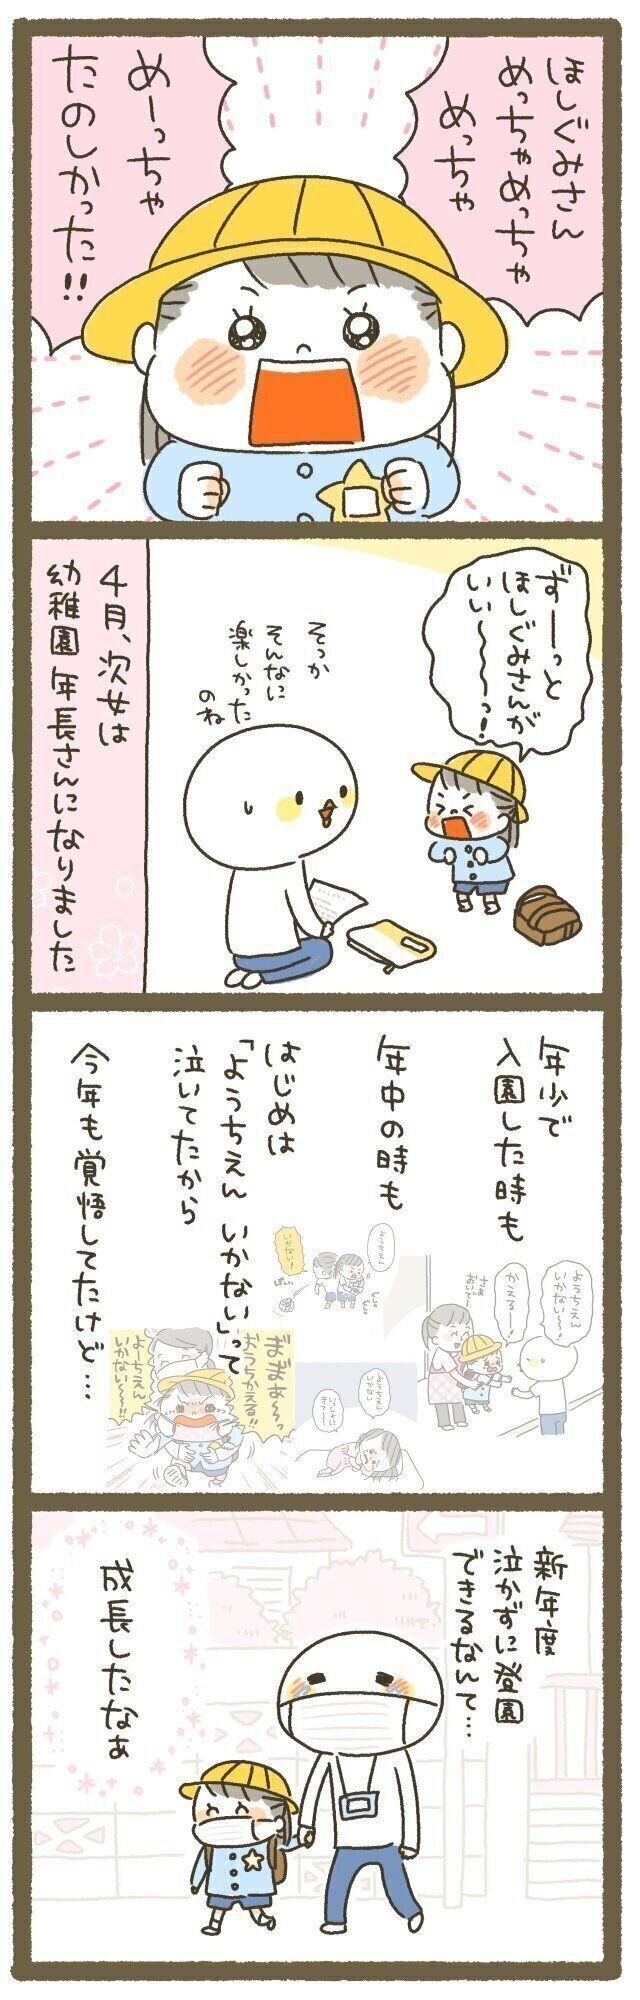 ほしぐみさん
めっちゃめっちゃ
めっちゃ
めーっちゃ
たのしかった!!
ずーっと
ほしぐみさんが
いい〜〜〜っ!
そっか
そんなに
楽しかった
のね
4月、次女は
幼稚園 年長さんになりました
年少で
入園した時も
年中の時も
はじめは
「ようちえん いかない」って
泣いてたから
今年も覚悟してたけど…
ようちえん
いかない〜!
かえるー!
さぁ
おいでー
ようちえん
いかない!
ぽいっ
ようちえん
いかない
いっしょに
きて〜
まぁまぁ〜っ
おうちかえる!!
よーちえん
いかない〜!!
新年度
泣かずに登園
できるなんて…
成長したなぁ